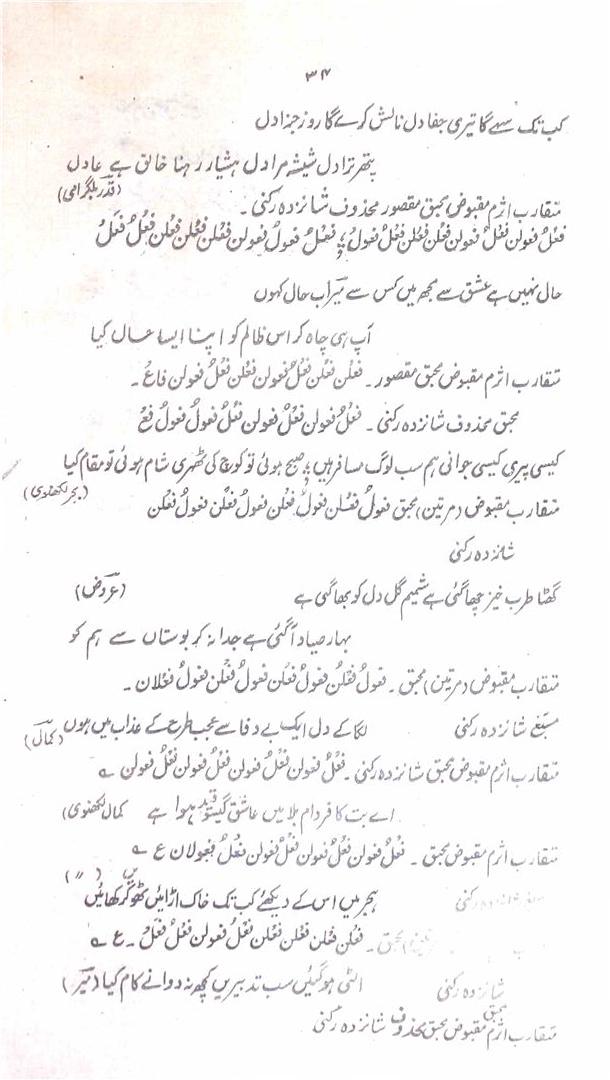 ۳۴
کب تک سہے گا تیری جفا دل نالش کرے گا روزِ جزا دل
پتھر ترا دل شیشہ مرا دل ہشیار رہنا خالق ہے عادل
(قدر بلگرامی)
متقارب اثرم مقبوض محبق مقصور محذوف شانزدہ رکنی۔
فعْلُ فعولن فعْلُ فعولن فعْلن فعْلن فعْلُ فعولُ؛ فعْلُ فعولُ فعولن فعْلن فعْلن فعْلن فعْلُ فعَلْ
حال نہیں ہے عشق سے مجھ میں کس سے میرؔ اب حال کہوں
آپ ہی چاہ کر اس ظالم کو اپنا ایسا حال کیا
متقارب اثرم مقبوض محبق مقصور۔ فعْلن فعْلن فعْلُ فعولن فعْلن فعْلُ فعولن فاعْ۔
محبق محذوف شانزدہ رکنی۔ فعْلُ فعولن فعْلُ فعولن فعْلُ فعولُ فعولُ فعْ
کیسی پیری کیسی جوانی ہم سب لوگ مسافر ہیں؛ صبح ہوئی تو کوچ کی ٹھہری شام ہوئی تو مقام کیا
(بحر لکھنوی)
متقارب مقبوض (مرتین) محبق فعولُ فعْلن فعولُ فعْلن فعولُ فعْلن فعولُ فعْلن
شانزدہ رکنی
گھٹا طرب خیز چھا گئی ہے شمیمِ گل دل کو بھا گئی ہے (عروض)
بہار صیاد آ گئی ہے جدا نہ کر بوستاں سے ہم کو
متقارب مقبوض (مرتین) محبق۔ فعولُ فعْلن فعولُ فعْلن فعولُ فعْلن فعولُ فعْلان۔
مسبغ شانزدہ رکنی لگا کے دل ایک بے وفا سے عجب طرح کے عذاب میں ہوں (کمالؔ)
متقارب اثرم مقبوض محبق شانزدہ رکنی۔ فعْلُ فعولن فعْلُ فعولن فعْلُ فعولن فعْلُ فعولن ؎
اے بتِ کافر دامِ بلا میں عاشقِ گیسو قید ہوا ہے کمال لکھنوی)
متقارب اثرم مقبوض محبق۔ فعْلُ فعولن فعْلُ فعولن فعْلُ فعولن فعْلُ فعولان ع ؎
شانزدہ رکنی ہجر میں اس کے دیکھئے کب تک خاک اڑائیں ٹھوکریں کھائیں (〃)
محبق۔ فعْلن فعْلن فعْلن فعْلن فعْلُ فعولن فعْلُ فعَلْ۔ ع ؎
شانزدہ رکنی الٹی ہو گئیں سب تدبیریں کچھ نہ دوا نے کام کیا (میرؔ)
متقارب اثرم مقبوض محبق محذوف شانزدہ رکنی